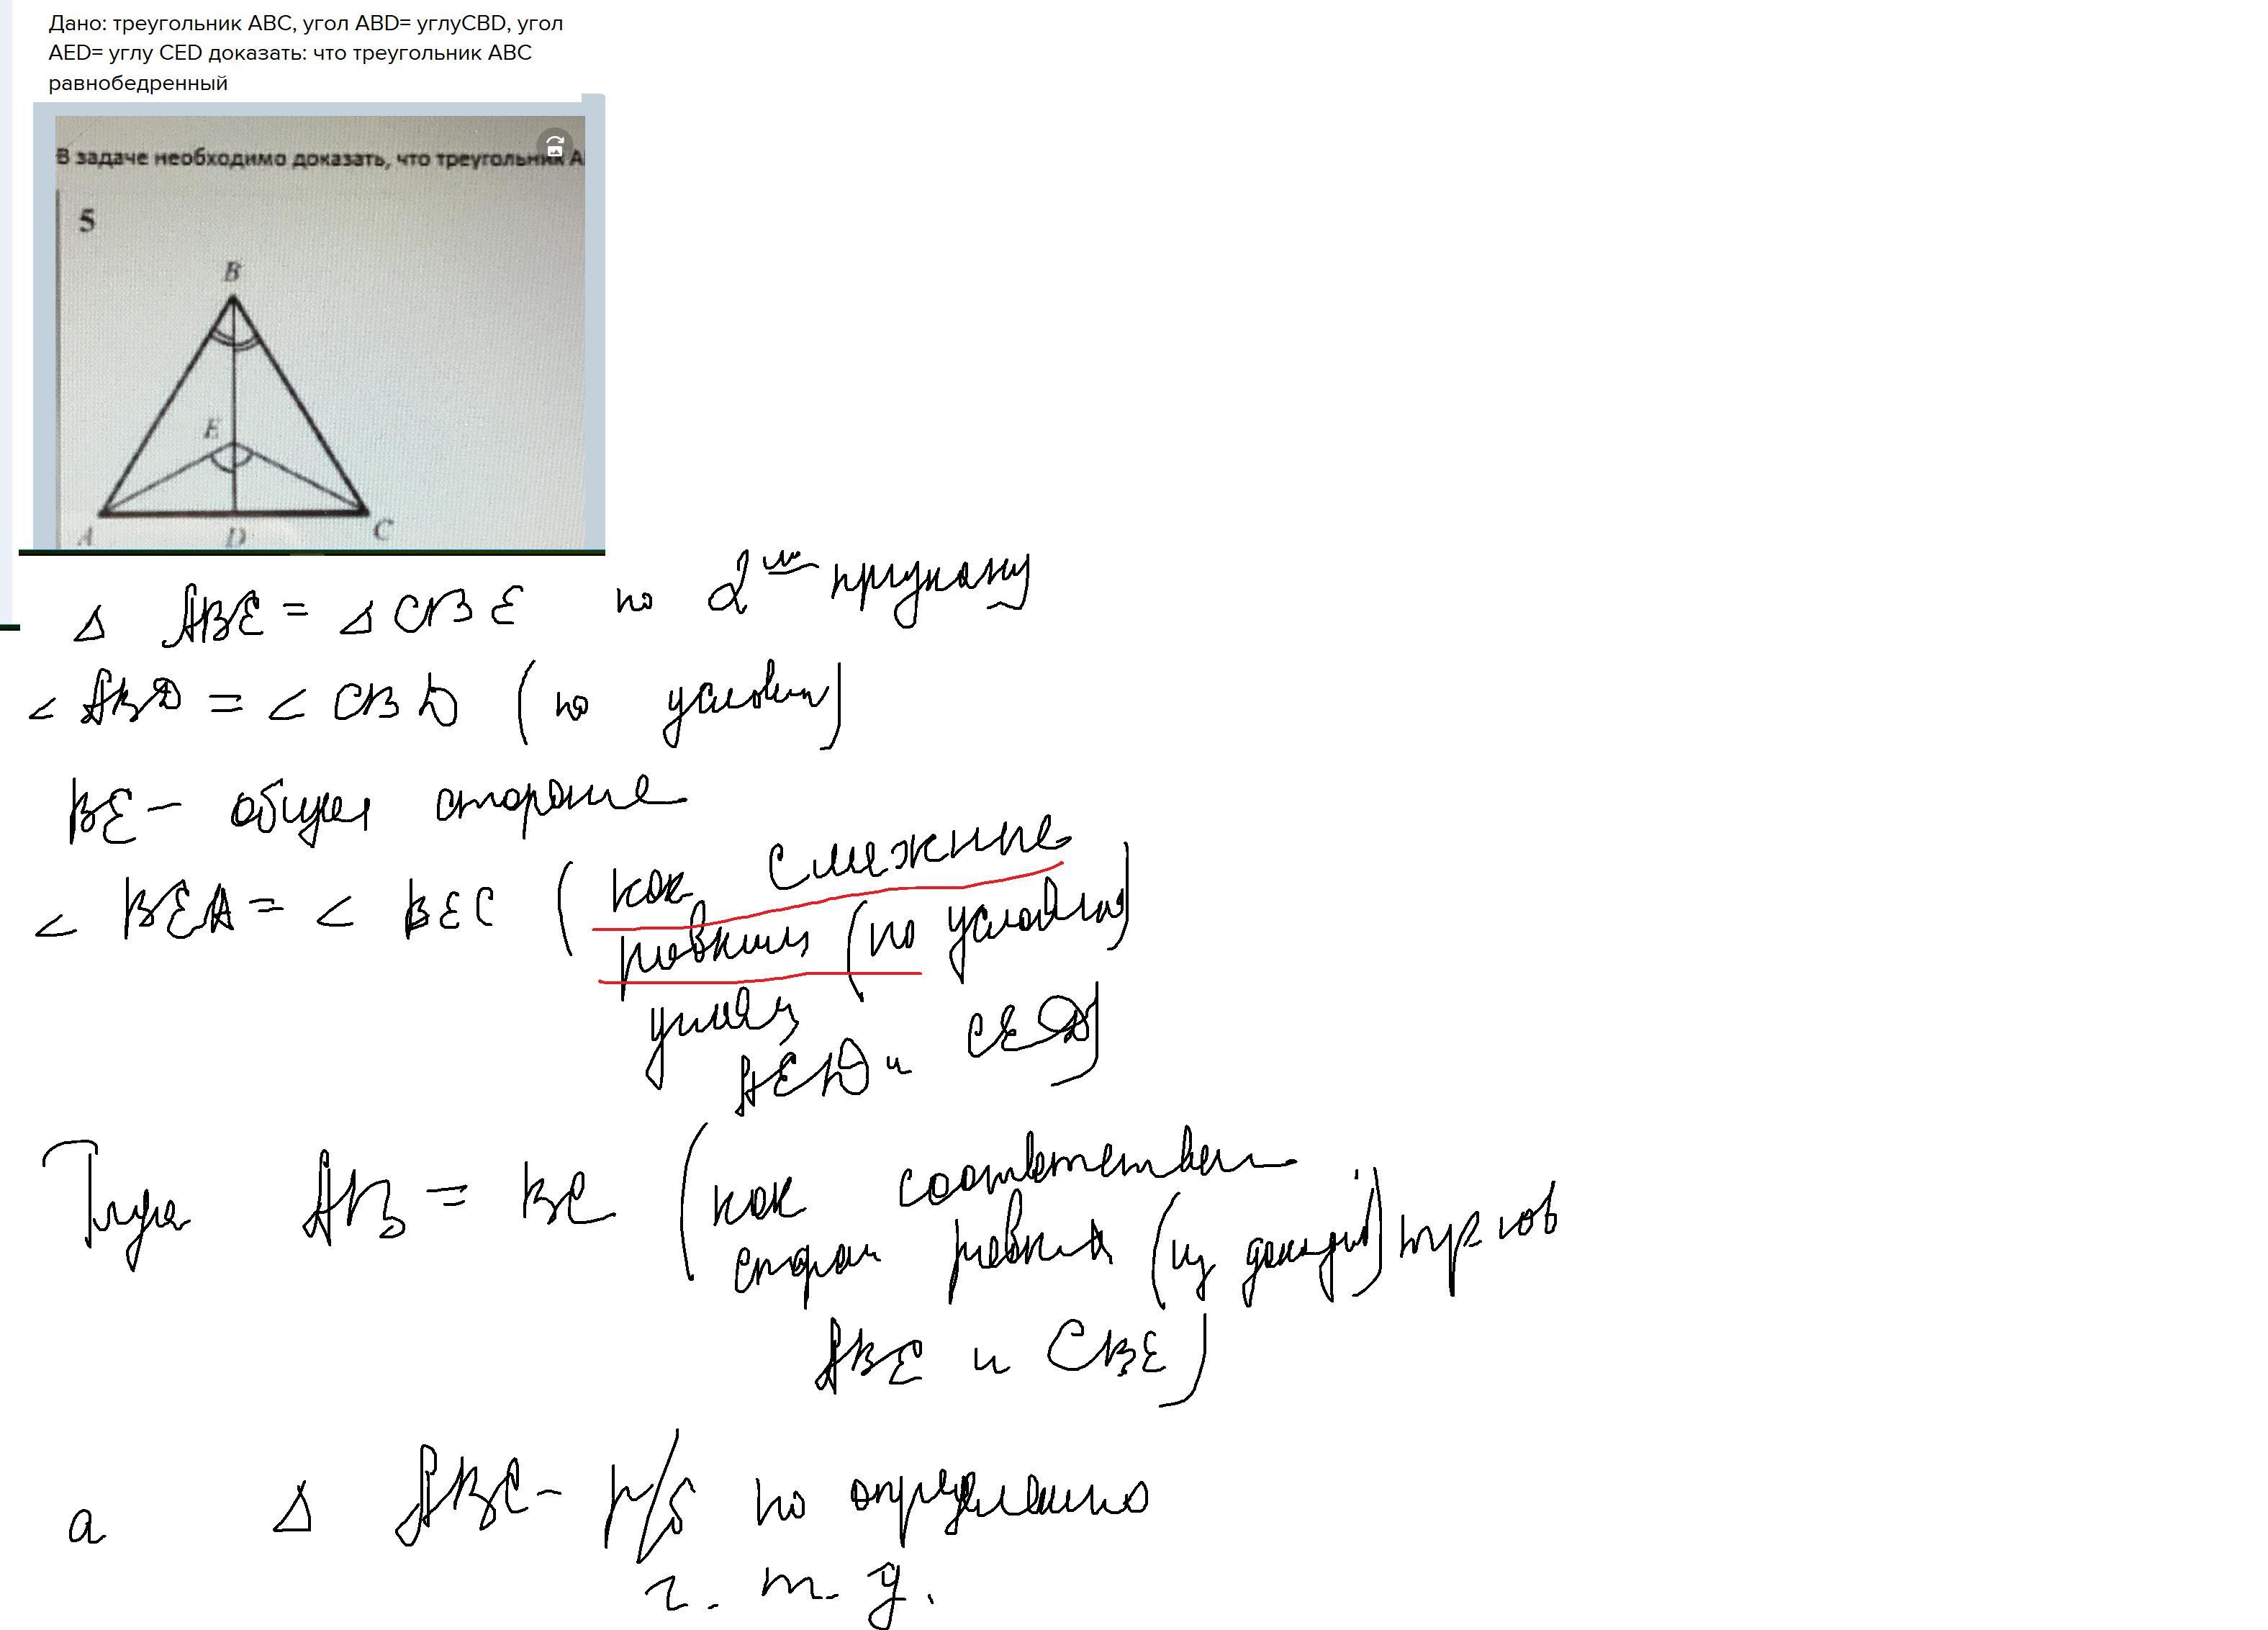 Дано: треугольник ABC, угол ABD= углуCBD, угол
AED= углу CED доказать: что треугольник ABC
равнобедренный
В задаче необходимо доказать, что треугольник А
5
B
E
A
D
C
Δ ABE = Δ CBE по 2ᵐ признаку
∠ ABD = ∠ CBD (по условию)
BE - общая сторона
∠ BEA = ∠ BEC (как смежные
равным (по условию)
углам
AED и CED)
Тогда AB = BC (как соответствен
сторон равных (из доказ) тр-ков
ABE и CBE)
а Δ ABC - р/б по определению
ч. т. д.